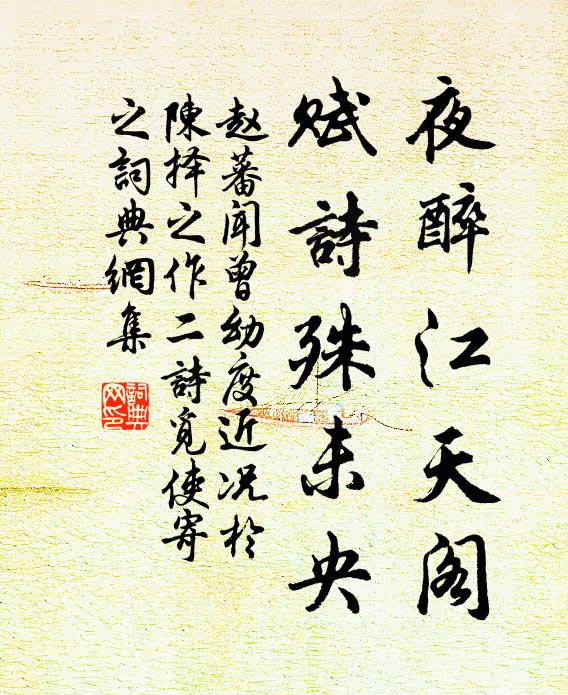 夜醉江天阁
赋詩殊未央
赵蕃闻曾幼度近况於
陳择之作二詩觅使寄
之詞典網集
詞典
网印